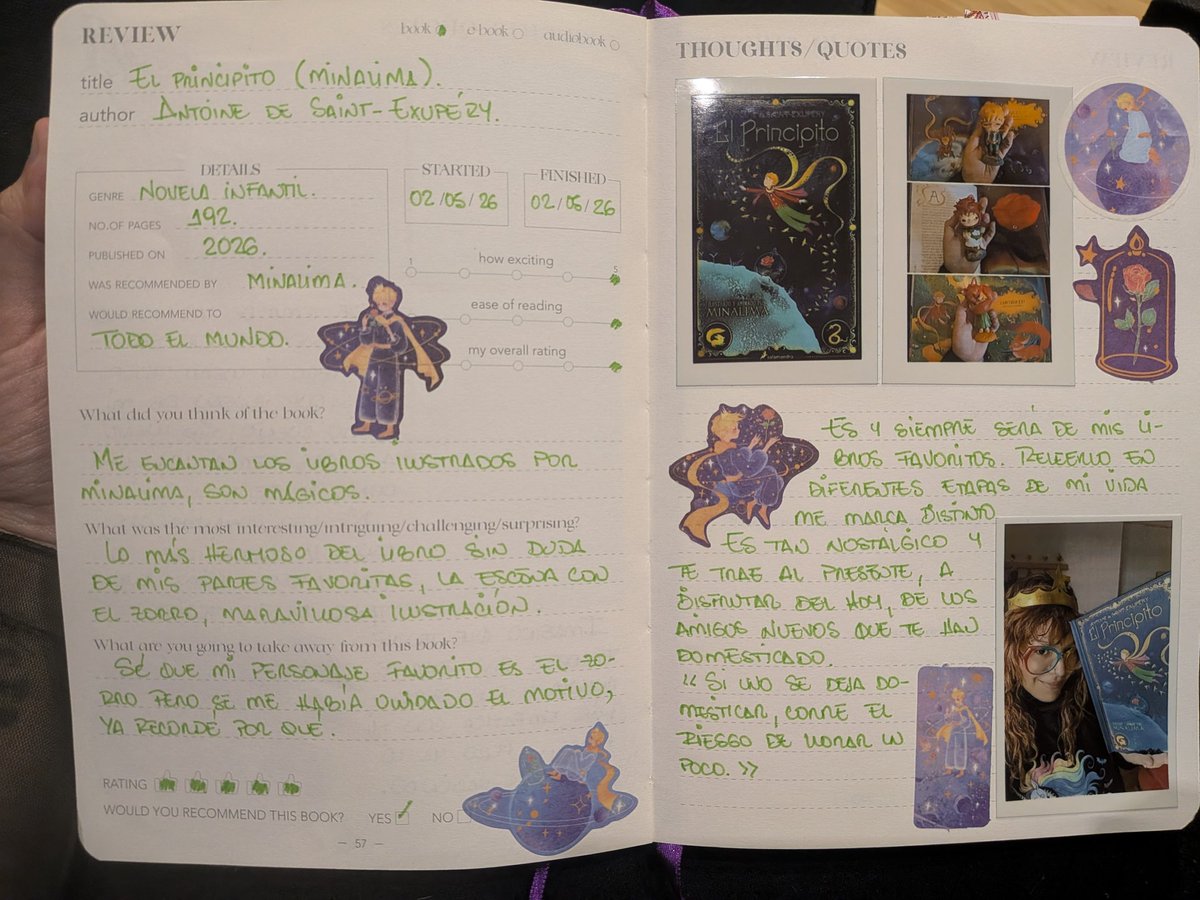 REVIEW
book e-book audiobook
title EL PRINCIPITO (MINALIMA).
author ANTOINE DE SAINT-EXUPÉRY.
DETAILS
GENRE NOVELA INFANTIL.
NO.OF PAGES 192.
PUBLISHED ON 2026.
WAS RECOMMENDED BY MINALIMA.
WOULD RECOMMEND TO
TODO EL MUNDO.
STARTED
02/05/26
FINISHED
02/05/26
how exciting
1 5
ease of reading
my overall rating
What did you think of the book?
ME ENCANTAN LOS LIBROS ILUSTRADOS POR
MINALIMA, SON MÁGICOS.
What was the most interesting/intriguing/challenging/surprising?
LO MÁS HERMOSO DEL LIBRO SIN DUDA
DE MIS PARTES FAVORITAS, LA ESCENA CON
EL ZORRO, MARAVILLOSA ILUSTRACIÓN.
What are you going to take away from this book?
SÉ QUE MI PERSONAJE FAVORITO ES EL ZO-
RRO PERO SE ME HABÍA OLVIDADO EL MOTIVO,
YA RECORDE POR QUE.
RATING
WOULD YOU RECOMMEND THIS BOOK? YES NO
— 57 —
THOUGHTS/QUOTES
El Principito
MINALIMA
salamandra
ES Y SIEMPRE SERÁ DE MIS LI-
BROS FAVORITOS. RELEERLO EN
DIFERENTES ETAPAS DE MI VIDA
ME MARCA DISTINTO
ES TAN NOSTÁLGICO Y
TE TRAE AL PRESENTE, A
DISFRUTAR DEL HOY, DE LOS
AMIGOS NUEVOS QUE TE HAN
DOMESTICADO.
« SI UNO SE DEJA DO-
MESTICAR, CORRE EL
RIESGO DE LLORAR UN
POCO. »
El Principito
MINALIMA